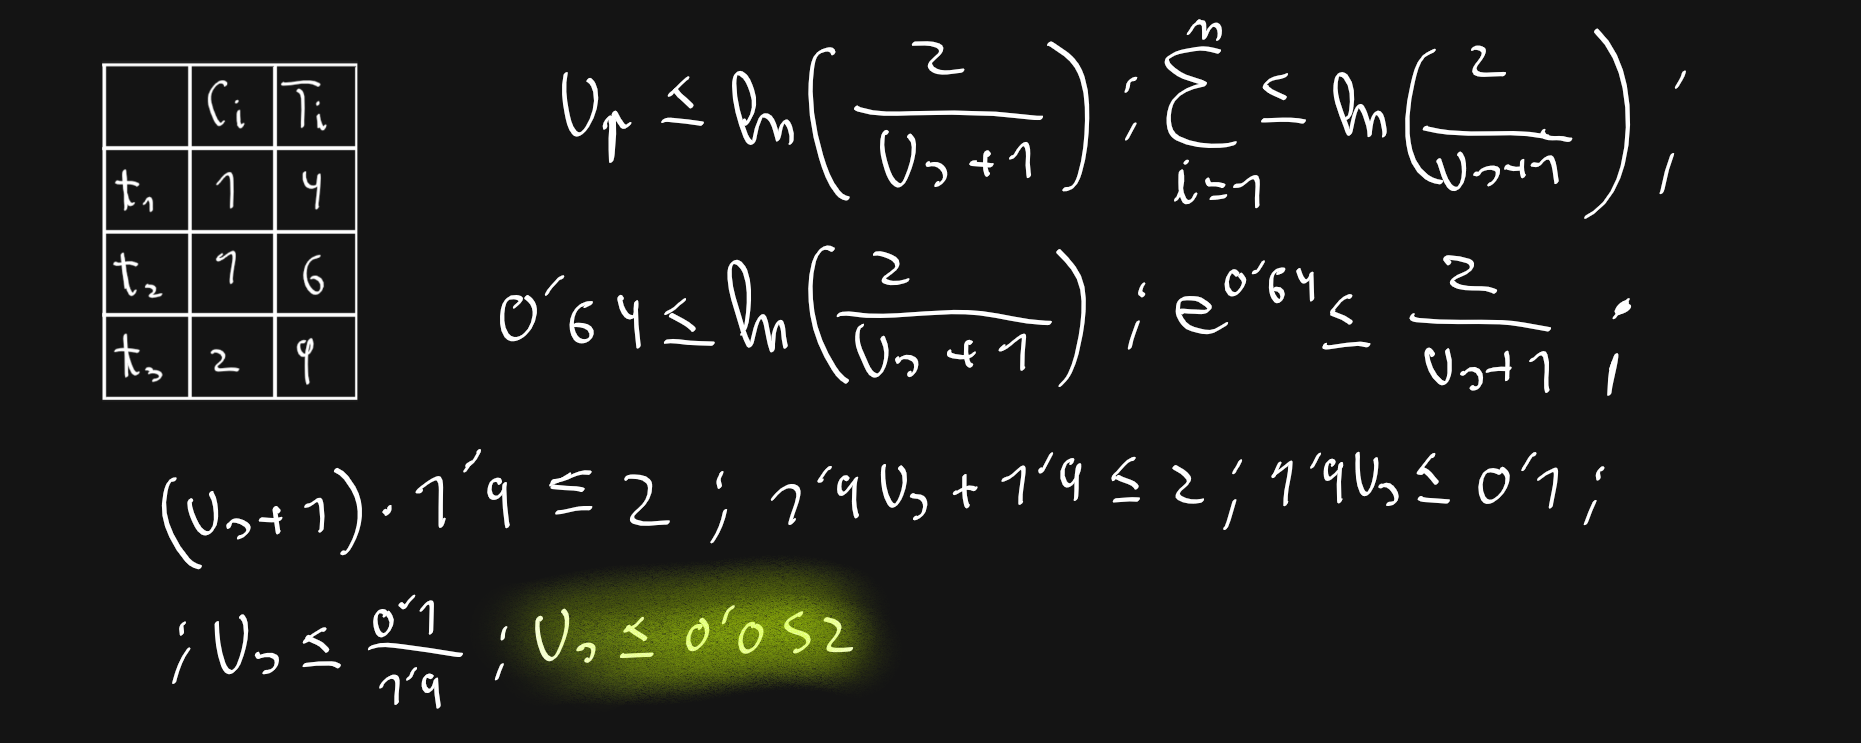 Ci Ti
t₁ 1 4
t₂ 1 6
t₃ 2 9
Up ≤ ln(2/(Us+1)) ; ∑_{i=1}^{n} ≤ ln(2/(Us+1)) ;
0'64 ≤ ln(2/(Us+1)) ; e^{0'64} ≤ 2/(Us+1) ;
(Us+1)·1'9 ≤ 2 ; 1'9Us + 1'9 ≤ 2 ; 1'9Us ≤ 0'1 ;
; Us ≤ 0'1/1'9 ; Us ≤ 0'052